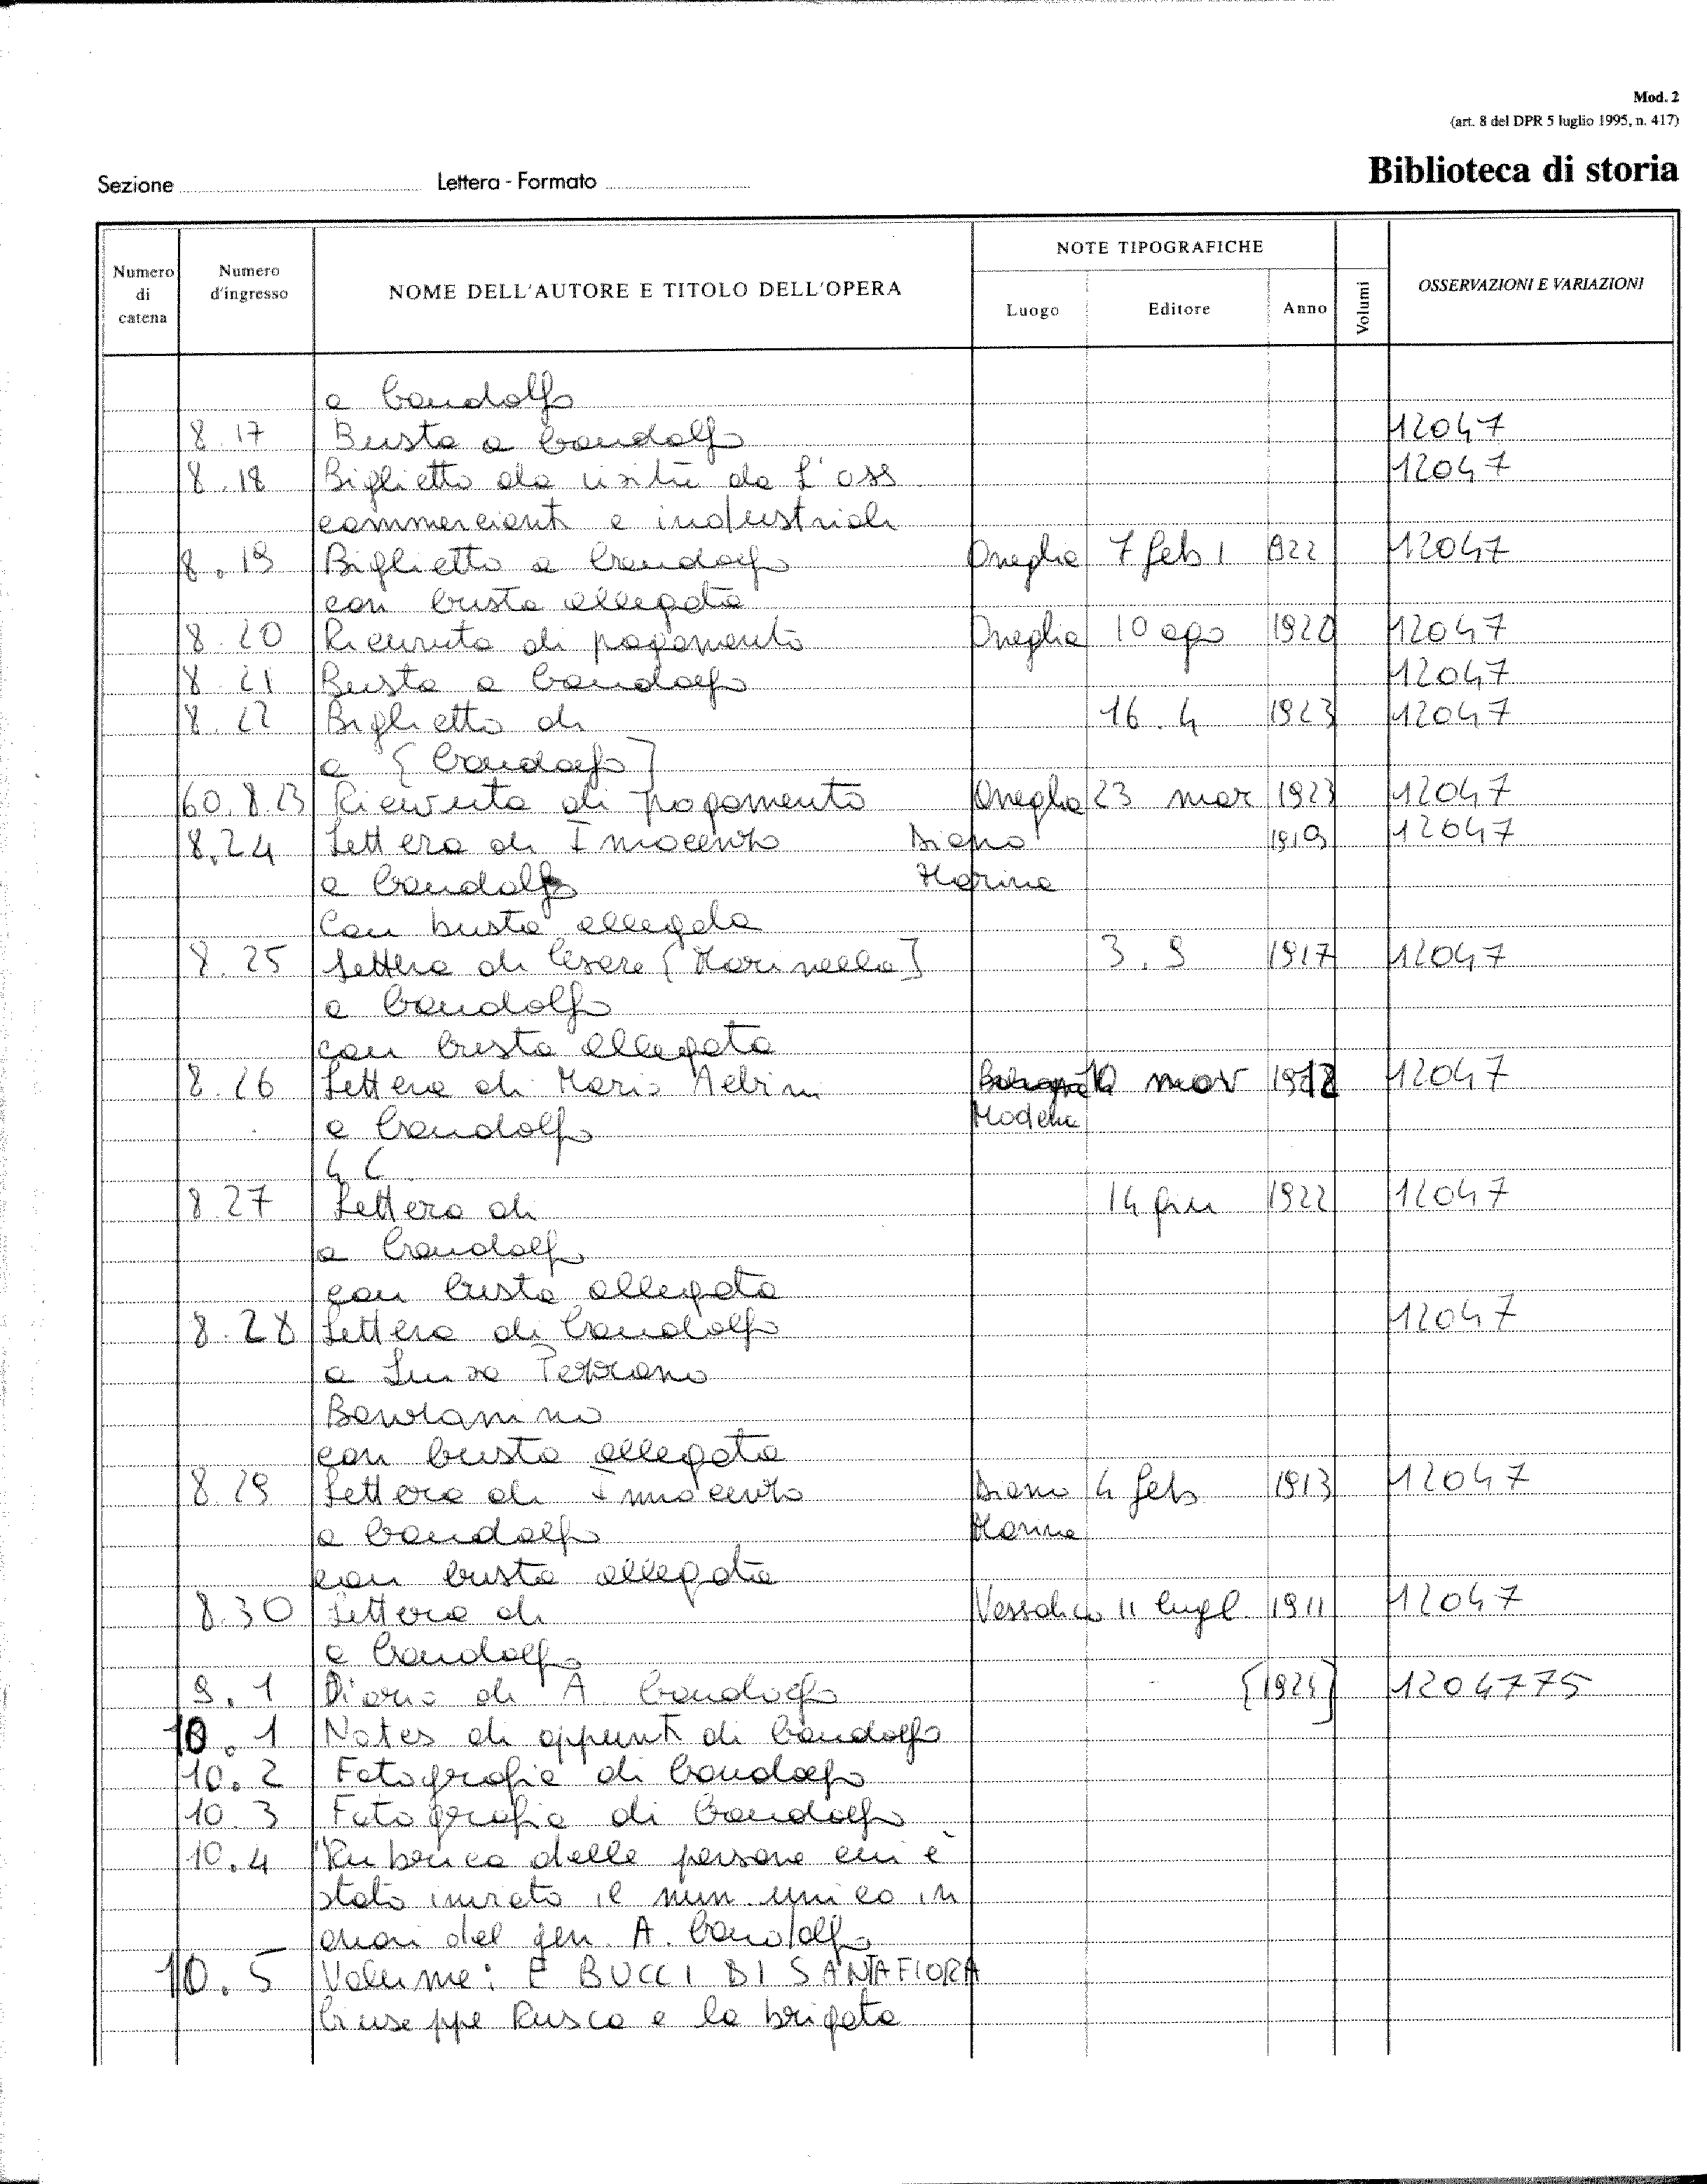 Mod. 2
(art. 8 del DPR 5 luglio 1995, n. 417)
Biblioteca di storia
Sezione Lettera - Formato
Numero di catena
Numero d'ingresso
NOME DELL'AUTORE E TITOLO DELL'OPERA
NOTE TIPOGRAFICHE
Luogo Editore Anno
Volumi
OSSERVAZIONI E VARIAZIONI
a Gandolfo
8.17 Busta a Gandolfo 12047
8.18 Biglietto da visita da L'ass 12047
commercianti e industriali
8.19 Biglietto a Gandolfo Oneglia 7 feb 1922 12047
con busta allegata
8.20 Ricevuta di pagamento Oneglia 10 ago 1920 12047
8.21 Busta a Gandolfo 12047
8.22 Biglietto di 16.4 1923 12047
a [Gandolfo]
60.8.23 Ricevuta di pagamento Oneglia 23 mar 1923 12047
8.24 Lettera di Innocenzo Diano 1919 12047
a Gandolfo Marina
Con busta allegata
8.25 Lettera di Cesare [Marinella] 3.9 1917 12047
a Gandolfo
con busta allegata
8.26 Lettera di Mario mar 12047
a Gandolfo
4 C
8.27 Lettera di 14 giu 1922 12047
a Gandolfo
con busta allegata
8.28 Lettera di Gandolfo 12047
a Luisa
con busta allegata
8.29 Lettera di Innocenzo Diano 4 feb 1913 12047
a Gandolfo Marina
con busta allegata
8.30 Lettera di Vessalico 11 lugl 1911 12047
a Gandolfo
9.1 Diario di A. Gandolfo [1924] 1204775
10.1 Notes di appunti di Gandolfo
10.2 Fotografia di Gandolfo
10.3 Fotografia di Gandolfo
10.4 Rubrica delle persone cui è
stato inviato il num. unico in
onori del gen. A. Gandolfo
10.5 Volume: E BUCCI DI SANTAFIORA
Giuseppe Rusca e la brigata